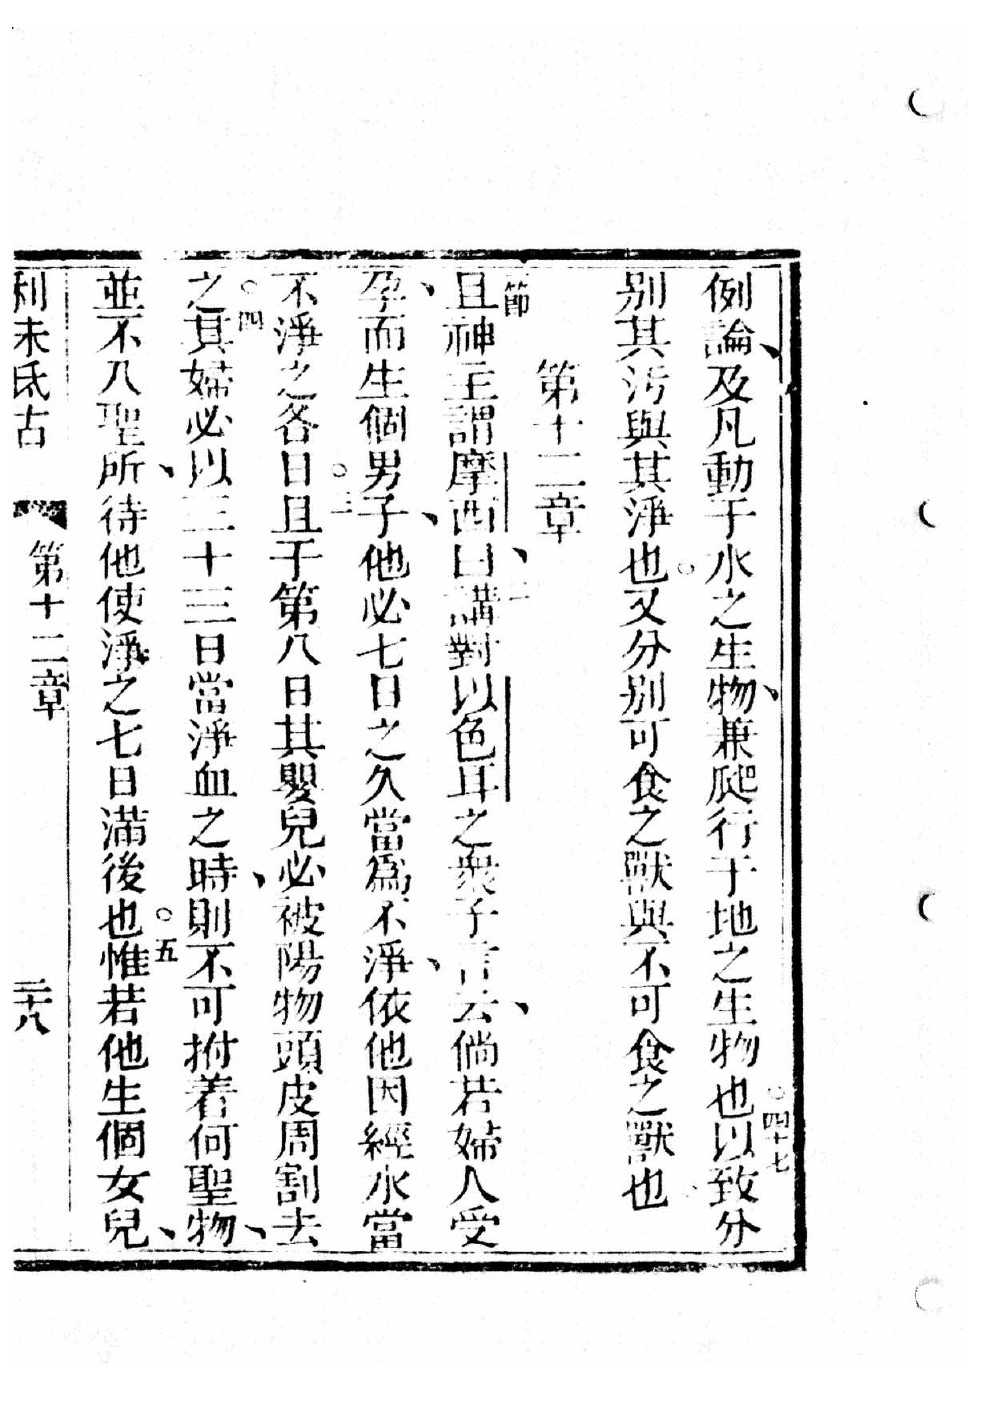 例論、及凡動于水之生物、兼爬行于地之生物也。四十七以致分
別其污與其淨也。又分別可食之獸與不可食之獸也
第十二章
節且神主謂摩西曰、二講對以色耳之衆子言云、倘若婦人受
孕、而生個男子、他必七日之久當爲不淨、依他因經水當
不淨之各日。三且于第八日其嬰兒必被陽物頭皮周割去
之。四其婦必以三十三日當淨血之時、則不可拊着何聖物、
並不入聖所、待他使淨之七日滿後也。五惟若他生個女兒、
利未氏古 第十二章 二十八